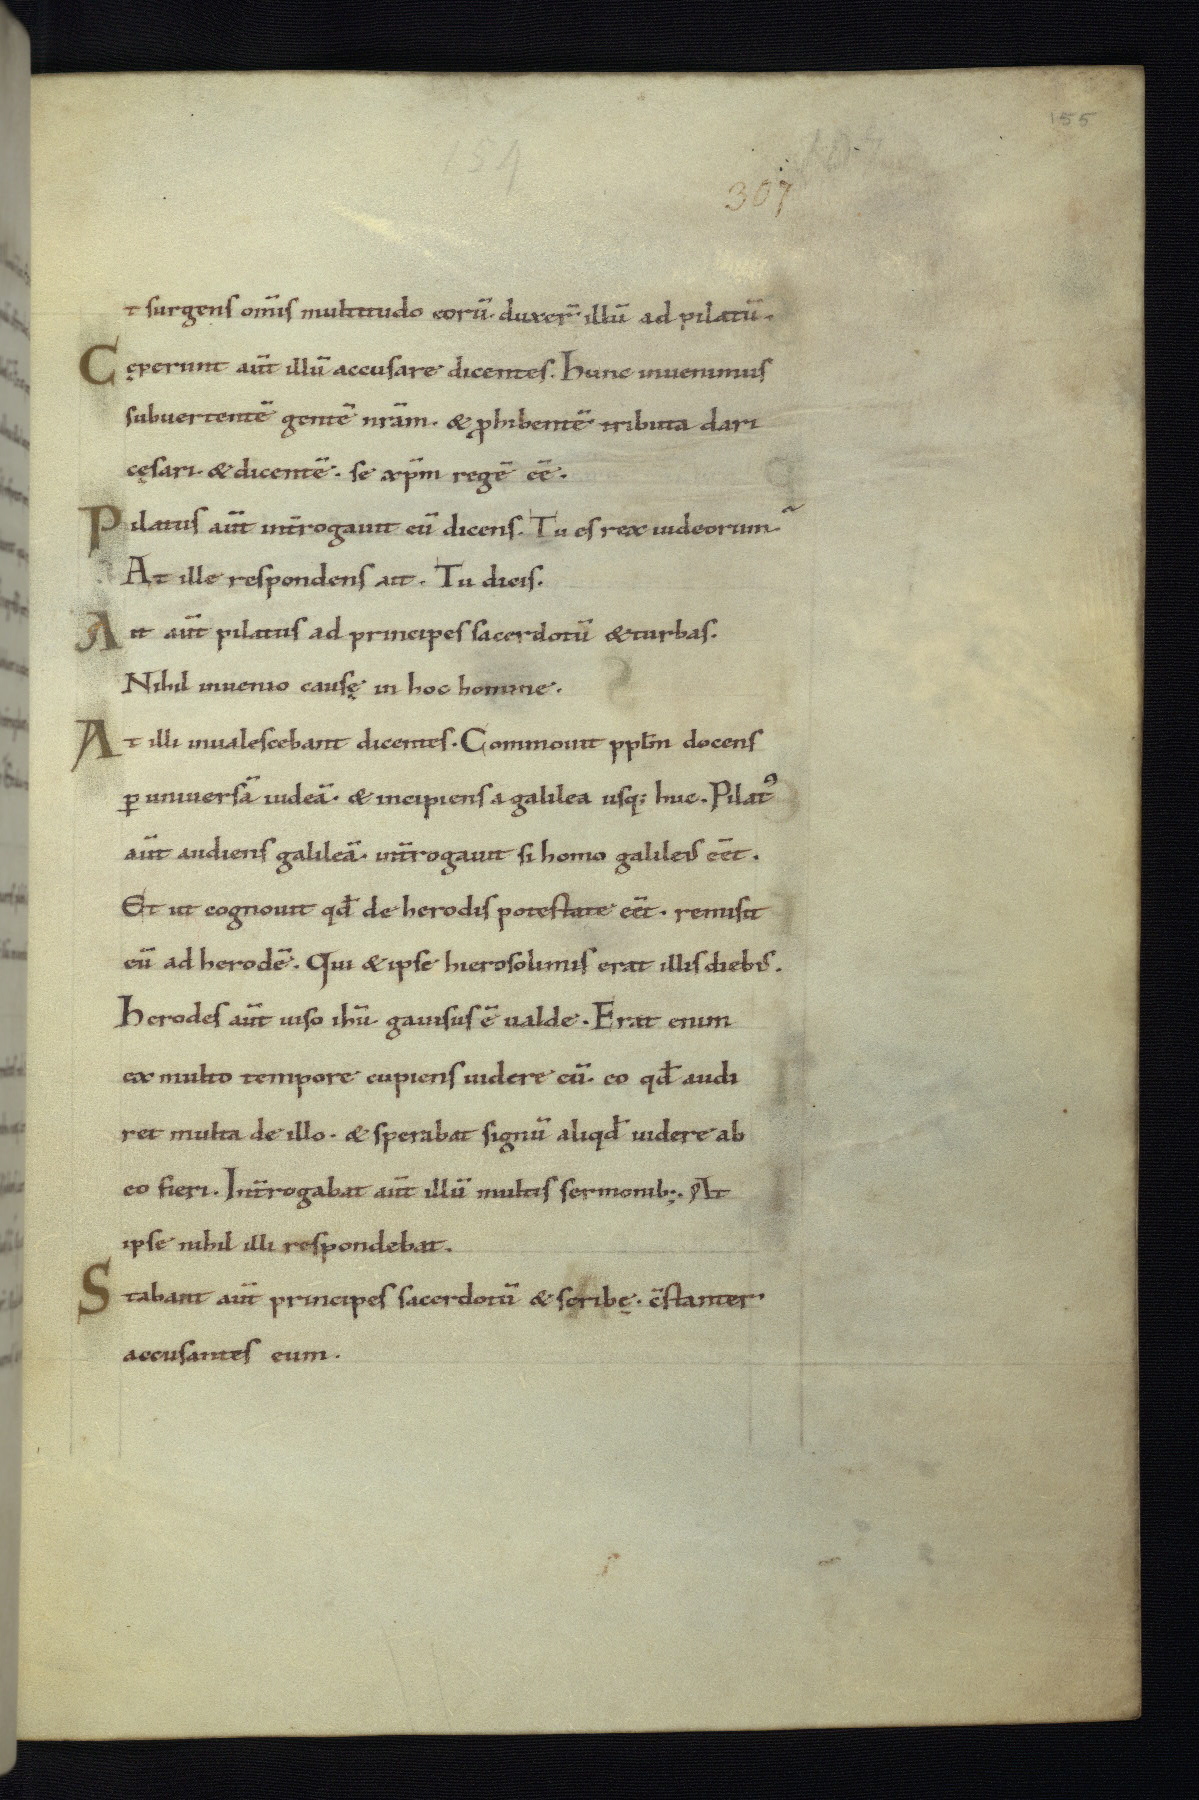 155
154
307
t surgens om̅is multitudo eorū. duxer̅ illū ad pilatū.
Cęperunt aut̅ illū accusare dicentes. Hunc inuenimus
subuertentē gentē nr̅am. & ꝓhibentē tributa dari
cęsari. & dicentē. se xp̅m regē eē.
Pilatus aut̅ int̅rogauit eū dicens. Tu es rex iudeorum
At ille respondens ait. Tu dicis.
Ait aut̅ pilatus ad principes sacerdotū & turbas.
Nihil inuenio causę in hoc homine.
At illi inualescebant dicentes. Commouit ppl̅m docens
ꝑ uniuersā iudeā. & incipiens a galilea usq; huc. Pilatꝰ
aut̅ audiens galileā. int̅rogauit si homo galileus eēt.
Et ut cognouit qd̅ de herodis potestate eēt. remisit
eū ad herodē. Qui & ipse hierosolimis erat illis diebus.
Herodes aut̅ uiso ihū gauisus ē ualde. Erat enim
ex multo tempore cupiens uidere eū. eo qd̅ audi
ret multa de illo. & sperabat signū aliqd̅ uidere ab
eo fieri. Int̅rogabat aut̅ illū multis sermonib;. At
ipse nihil illi respondebat.
Stabant aut̅ principes sacerdotū & scribę. c̅stanter
accusantes eum.